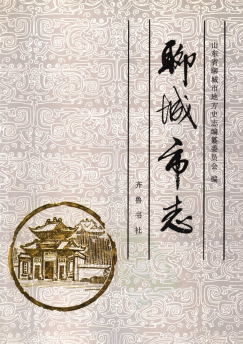 山东省聊城市地方史志编纂委员会 编
聊城市志
齐鲁书社